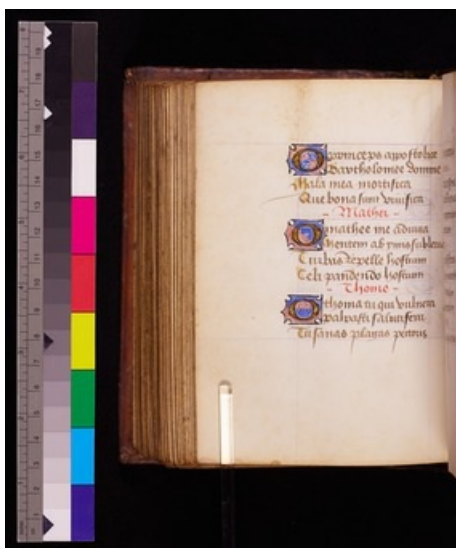 O princeps apostolice
Bartholomee domine
Mala mea mortifica
Que bona sunt vivifica
Mathei
O mathee me adiuva
Mentem ab
Turbas repelle hostium
Celi pandendo hostium
Thome
O thoma tu qui vulnera
palpasti salutifera
Tu sanas plagas pectoris